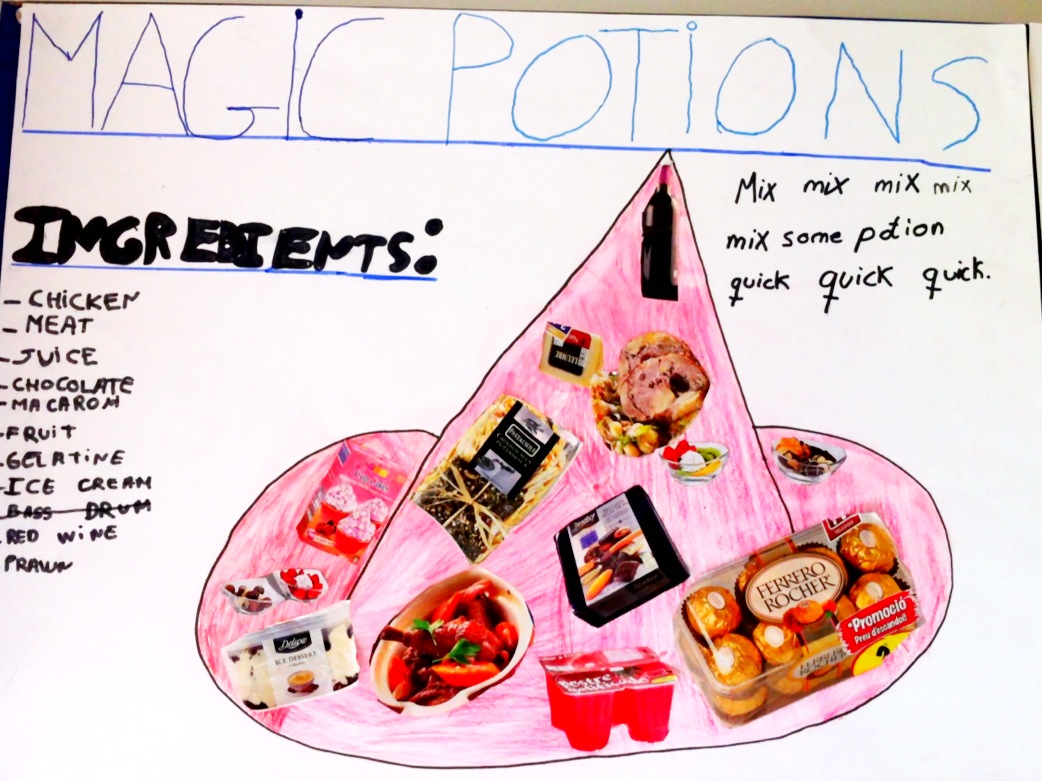 MAGIC POTIONS
Mix mix mix mix
mix some potion
quick quick quick.
INGREDIENTS:
- CHICKEN
- MEAT
- JUICE
- CHOCOLATE
- MACARON
- FRUIT
- GELATINE
- ICE CREAM
BASS DRUM
- RED WINE
PRAWN
Deluxe
ICE DESSERT
FERRERO
ROCHER
"Promoció
Preu d'escàndol!